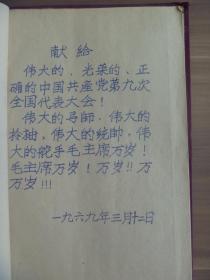 献给
伟大的、光荣的、正
确的中国共產党第九次
全国代表大会！
伟大的导师、伟大的
领袖、伟大的统帅、伟
大的舵手毛主席万岁！
毛主席万岁！万岁!!万
万岁!!!
一九六九年三月十二日